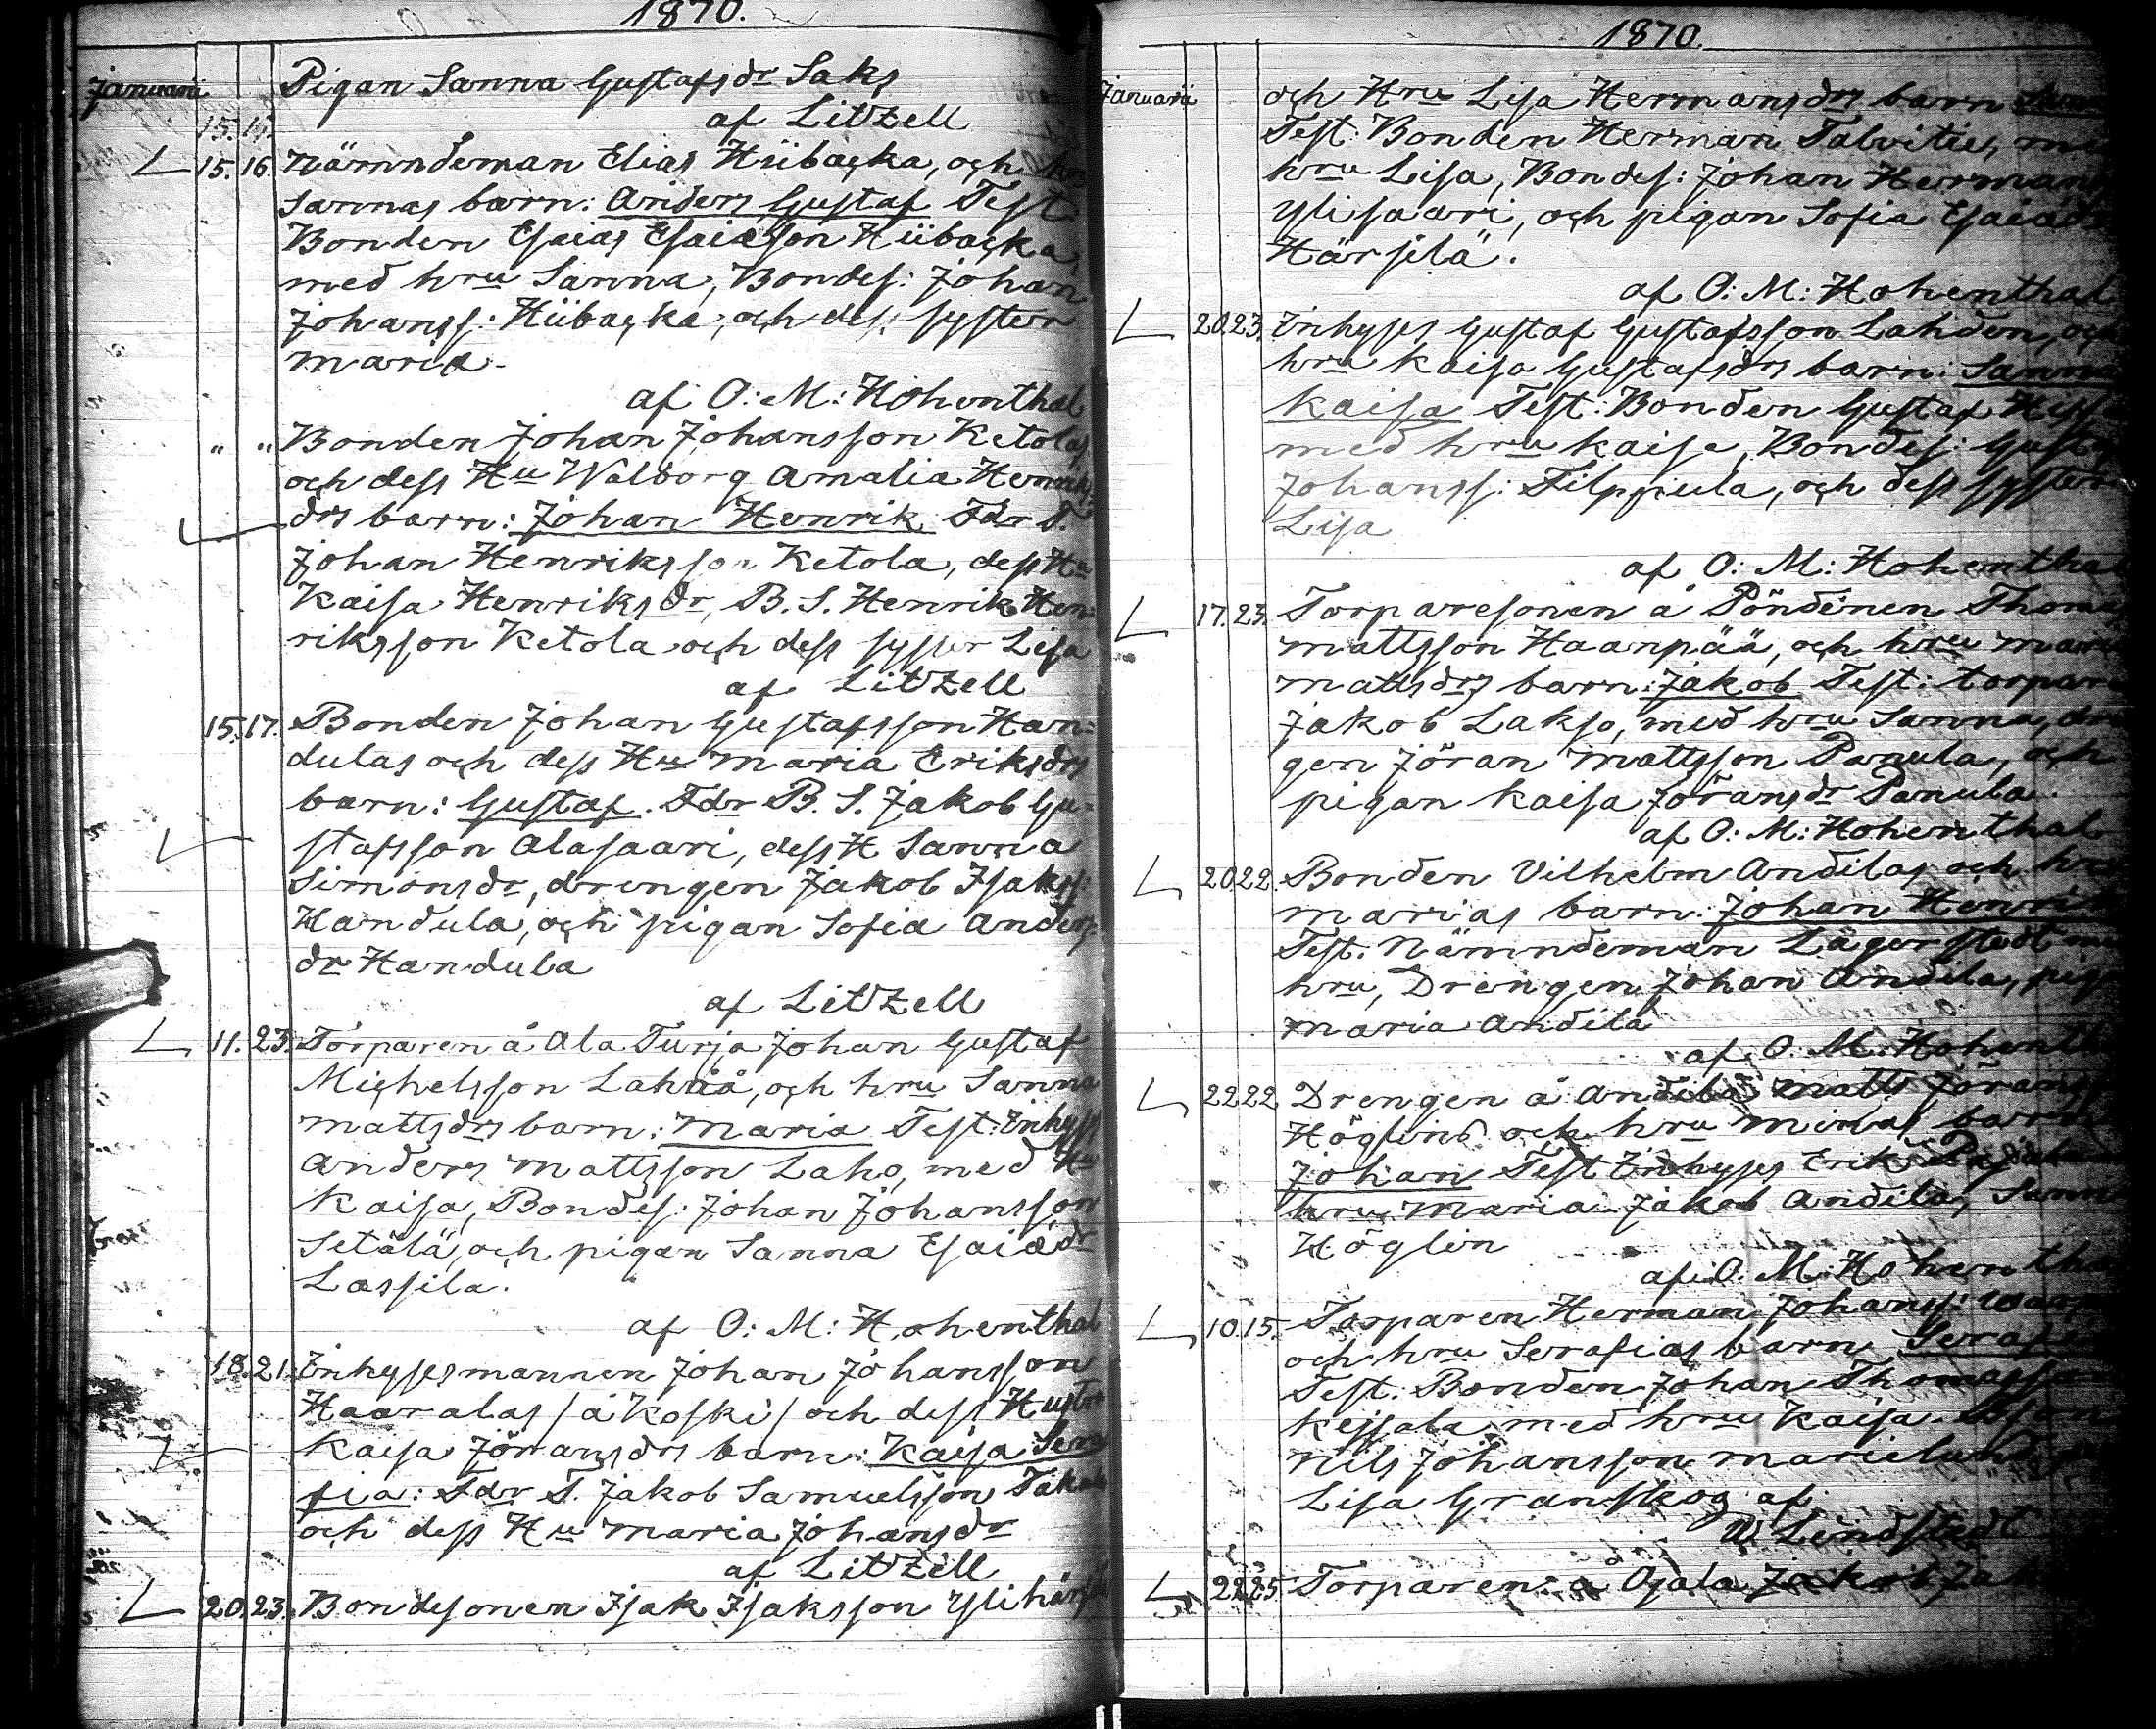 1870.
Januari Pigan Sanna Gustafsdr Saks
15. af Litzell
15. 16. Nämndeman Elias Hiibacka, och
Sannas barn: Anders Gustaf Test
Bonden Esaias Esaiasson Hiibacka,
med hru Sanna, Bondes: Johan
Johanss: Hiibacka, och dess syster
Maria.
af O: M: Hohenthal
" " Bonden Johan Johansson Ketolas
och dess Hu Walborg Amalia Henriks
drs barn: Johan Henrik Fdr T.
Johan Henriksson Ketola, dess Hu
Kaisa Henriksdr, B. S. Henrik Hen-
riksson Ketola och dess syster Lisa
af Litzell
15. 17. Bonden Johan Gustafsson Han-
dulas och dess Hu Maria Eriksdrs
barn: Gustaf. Fdr B. S. Jakob Gu-
stafsson Alasaari, dess H Sanna
Simonsdr, drengen Jakob Isakss:
Handula, och pigan Sofia Anders
dr Handula
af Litzell
11. 23. Torparen å Ala Turja Johan Gustaf
Michelsson Lahää, och hru Sanna
Mattsdrs barn: Maria Test: Inhyss
Anders Mattsson Laho, med Hu
Kaisa, Bondes: Johan Johansson
Setälä, och pigan Sanna Esaiædr
Lassila.
af O: M: Hohenthal
18. 21. Inhysesmannen Johan Johansson
Haaralas /å Koski/ och dess Hustr
Kaisa Jöransdrs barn: Kaisa Sera
fia: Fdr T. Jakob Samuelsson
och dess Hu Maria Johansdr
af Litzell
20. 23. Bondesonen Isak Isaksson Ylihärsi
1870.
Januari och Hru Lisa Hermansdrs barn
Test: Bonden Herman Talvitie, me
hru Lisa, Bondes: Johan Hermans
Ylisaari, och pigan Sofia Esaiædr
Härsilä.
af O: M: Hohenthal
20. 23. Inhyses Gustaf Gustafsson Lahden, och
hru Kaisa Gustafsdrs barn: Sanna
Kaisa Test: Bonden Gustaf
med hru Kaisa, Bondes: Gustaf
Johanss: Filppula, och dess syster
Lisa
af O: M: Hohentha
17. 23. Torparesonen å Pöndinen Thomas
Mattsson Haanpää, och hru Maria
Mattsdrs barn: Jakob Test: torpare
Jakob Lakso, med hru Sanna, dren
gen Jöran Mattsson Panula, och
pigan Kaisa Jöransdr Panula.
af O: M: Hohenthal
20. 22. Bonden Vilhelm Andilas och hru
Marias barn: Johan Henrik
Test: Nämndeman Lägerstedt me
hru, Drengen Johan Andila, pig
Maria Andila
af O: M: Hohenth
22. 22. Drengen å Andila Matts Jörans
Höglind och hru Minas barn
Johan Test Inhyses Erik
hru Maria Jakob Andila, Sanna
Höglin
af O: M: Hohentha
10. 15. Torparen Herman Johanss:
och hru Serafias barn
Test: Bonden Johan Thomasson
Kessala med hru Kaisa
Nils Johansson
Lisa Granskog af
W Lindstedt
22. 25. Torparen å Ojala Jakob